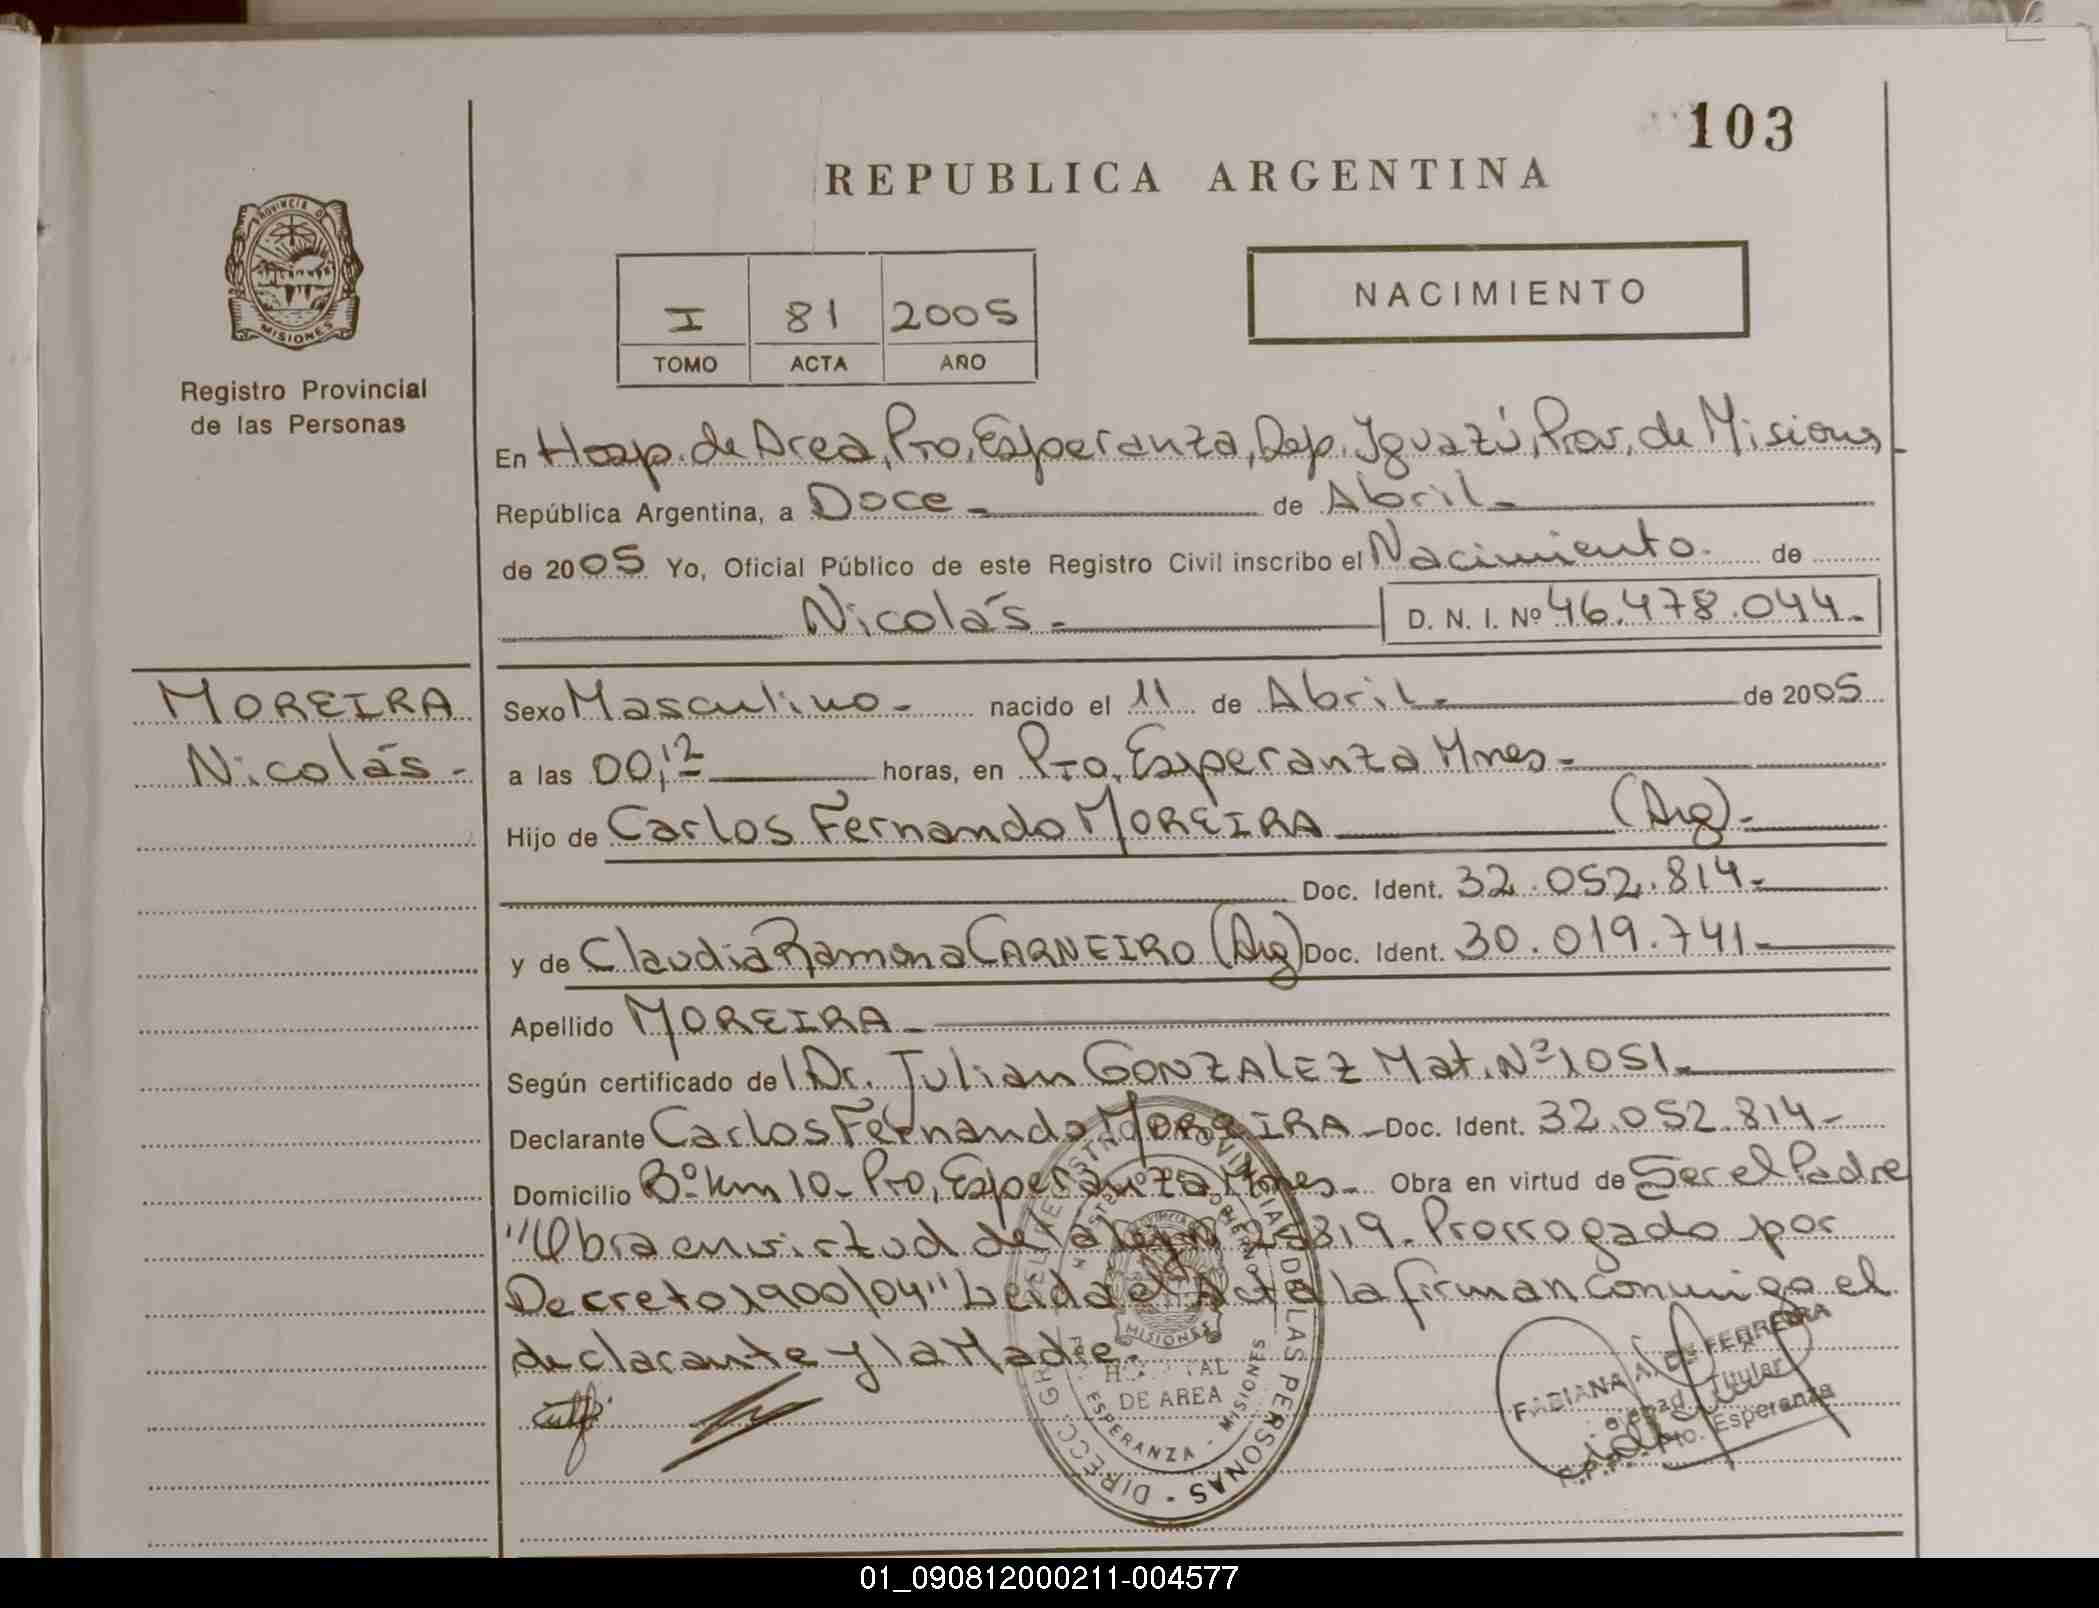 103
REPUBLICA ARGENTINA
PROVINCIA D
MISIONES
Registro Provincial
de las Personas
I 81 2005
TOMO ACTA AÑO
NACIMIENTO
En Hosp. de Area, Pto, Esperanza, Dep. Iguazú, Prov, de Misiones
República Argentina, a Doce de Abril
de 2005 Yo, Oficial Público de este Registro Civil inscribo el Nacimiento. de
Nicolás D. N. I. Nº 46.478.044
MOREIRA
Nicolás
Sexo Masculino nacido el 11 de Abril de 2005
a las 00,12 horas, en Pto, Esperanza Mnes
Hijo de Carlos Fernando MOREIRA (Arg)
Doc. Ident. 32.052.814
y de Claudia Ramona CARNEIRO (Arg) Doc. Ident. 30.019.741
Apellido MOREIRA
Según certificado del Dr. Julian GONZALEZ Mat. Nº 1051
Declarante Carlos Fernando MOREIRA Doc. Ident. 32.052.814
Domicilio Bº Km 10 Pto, Esperanza Mnes Obra en virtud de Ser el Padre
"Obra en virtud de la ley 25819. Prorrogado por
Decreto 1900/04" Leida el Acta la firman conmigo el
declarante y la Madre.
LAS PERSONAS - DIRECC
MISIONES
DE AREA
ESPERANZA - MISIONES
FABIANA A. DE FERREYRA
Titular
Pto. Esperanza
01_090812000211-004577